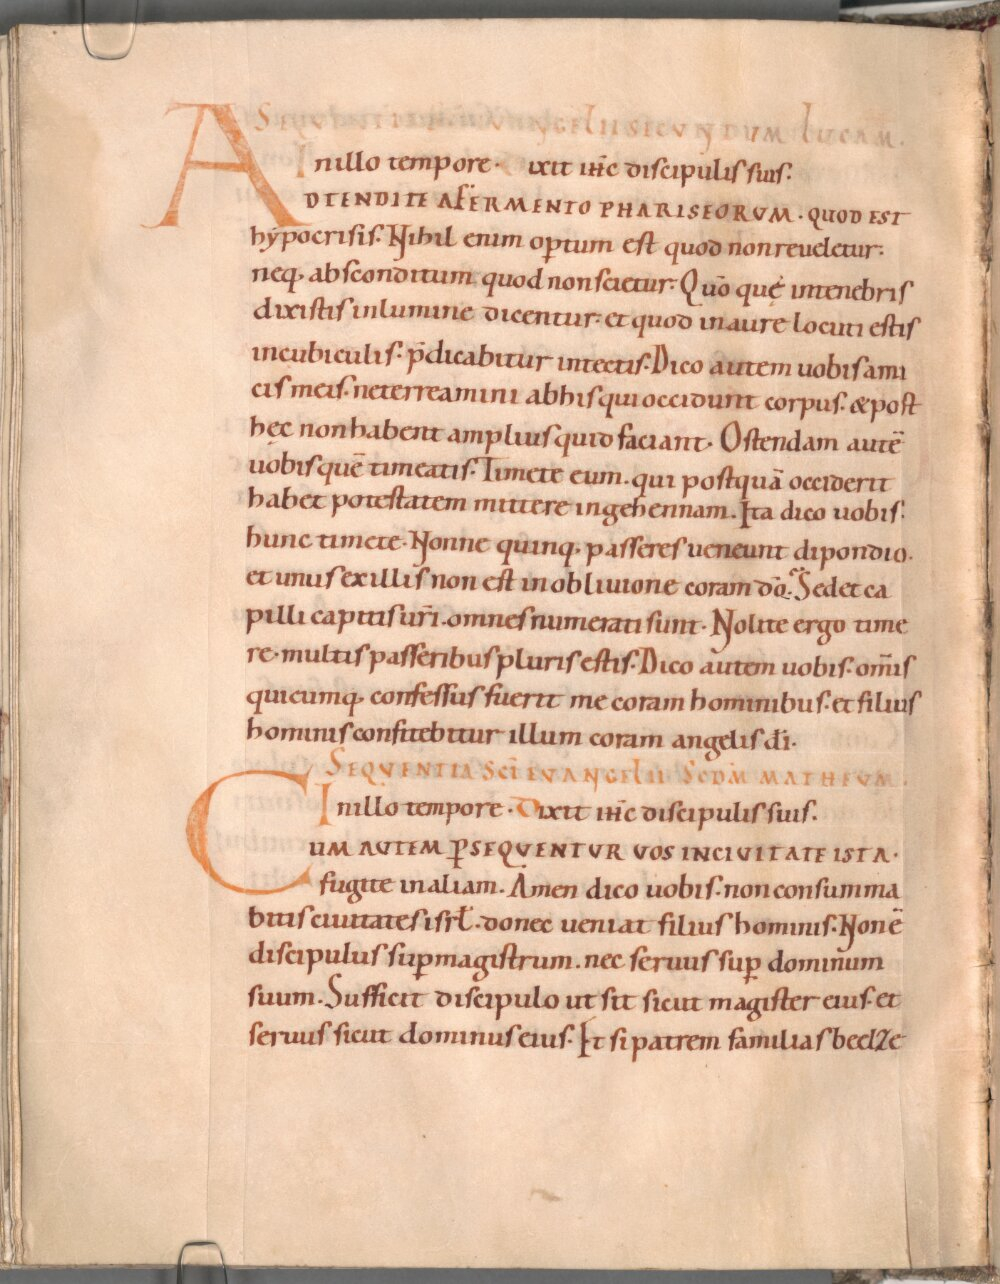 SEQUENTIA SCI EVANGELII SECUNDUM LUCAM.
In illo tempore. Dixit ihc discipulis suis.
ADTENDITE A FERMENTO PHARISEORUM. QUOD EST
hypocrisis. Nihil enim optum est quod non reueletur.
neq; absconditum quod non scietur. Quo quę in tenebris
dixistis in lumine dicentur. et quod in aure locuti estis
in cubiculis. p̄dicabitur in tectis. Dico autem uobis ami
cis meis. ne terreamini ab his qui occidunt corpus. & post
hęc non habent amplius quid faciant. Ostendam autē
uobis quē timeatis. Timete eum. qui postquā occiderit
habet potestatem mittere in gehennam. Ita dico uobis.
hunc timete. Nonne quinq; passeres ueneunt dipondio.
et unus ex illis non est in obliuione coram dō. Sed et ca
pilli capitis ur̄i. omnes numerati sunt. Nolite ergo time
re. multis passeribus pluris estis. Dico autem uobis. om̄is
quicumq; confessus fuerit me coram hominibus. et filius
hominis confitebitur illum coram angelis dī.
SEQUENTIA SCĪ EVANGELII SCDM̄ MATHEUM.
In illo tempore. Dixit ihc discipulis suis.
CUM AUTEM P̱SEQUENTUR VOS IN CIVITATE ISTA.
fugite in aliam. Amen dico uobis. non consumma
bitis ciuitates isrł. donec ueniat filius hominis. Non ē
discipulus suꝑ magistrum. nec seruus suꝑ dominum
suum. Sufficit discipulo ut sit sicut magister eius. et
seruus sicut dominus eius. Et si patrem familias beelze